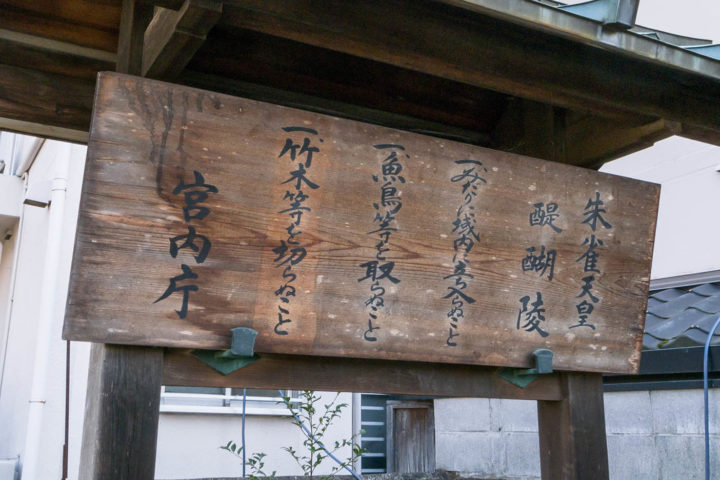 朱雀天皇
醍醐陵
一、みだりに域内に立入らぬこと
一、魚鳥等を取らぬこと
一、竹木等を切らぬこと
宮内庁